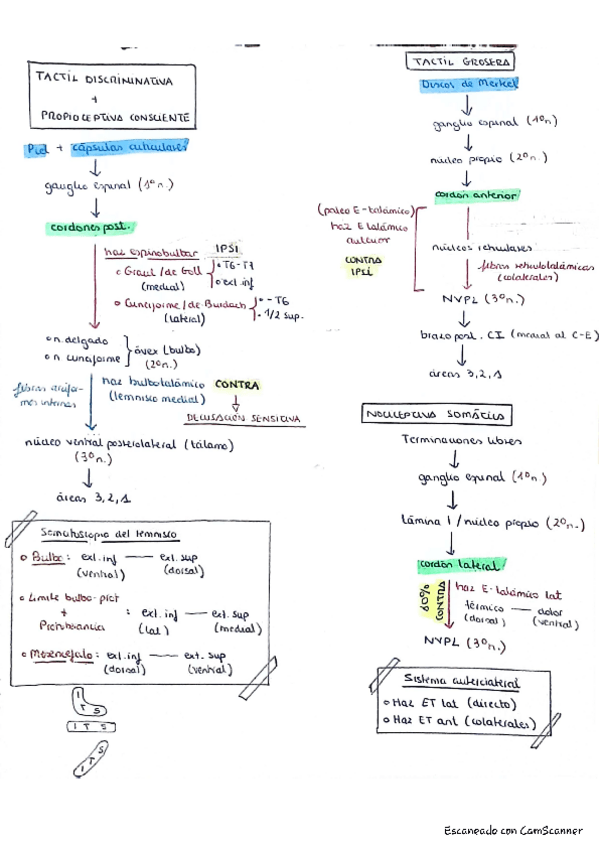 TACTIL DISCRIMINATIVA
+
PROPIOCEPTIVA CONSCIENTE
Piel + cápsulas auriculares
ganglio espinal (1ºn.)
cordones post.
haz espinobulbar IPSI
o Gracil / de Goll
(medial)
o -T6-T7
o ext. inf
o Cuneiforme / de Burdach
(lateral)
o - T6
1/2 sup.
o n. delgado
o n cuneiforme
óvex (bulbo)
(2ºn.)
fibras arcifor-
mes internas
haz bulbotalámico CONTRA
(lemnisco medial)
DECUSACIÓN SENSITIVA
núcleo ventral posterolateral (tálamo)
(3ºn.)
áreas 3,2,1
Somatotopia del lemnisco
o Bulbo: ext. inf — ext. sup
(ventral) (dorsal)
o Límite bulbo-prot
+
Protuberancia
: ext. inf — ext. sup
(lat) (medial)
o Mesencéfalo: ext. inf — ext. sup
(dorsal) (ventral)
I T S
I T S
I T S
TACTIL GROSERA
Discos de Merkel
ganglio espinal (1ºn)
núcleo propio (2ºn.)
cordón anterior
(paleo E-talámico)
haz E talámico
anterior
CONTRA
IPSI
núcleos reticulares
fibras reticulotalámicas
(colaterales)
NVPL (3ºn.)
brazo post. CI (medial al C-E)
áreas 3,2,1
NOCICEPTIVA SOMÁTICA
Terminaciones libres
ganglio espinal (1ºn)
lámina I / núcleo propio (2ºn.)
cordón lateral
80%
CONTRA
haz E-talámico lat
térmico — dolor
(dorsal) (ventral)
NVPL (3ºn.)
Sistema anterolateral
o Haz ET lat (directo)
o Haz ET ant (colaterales)
Escaneado con CamScanner